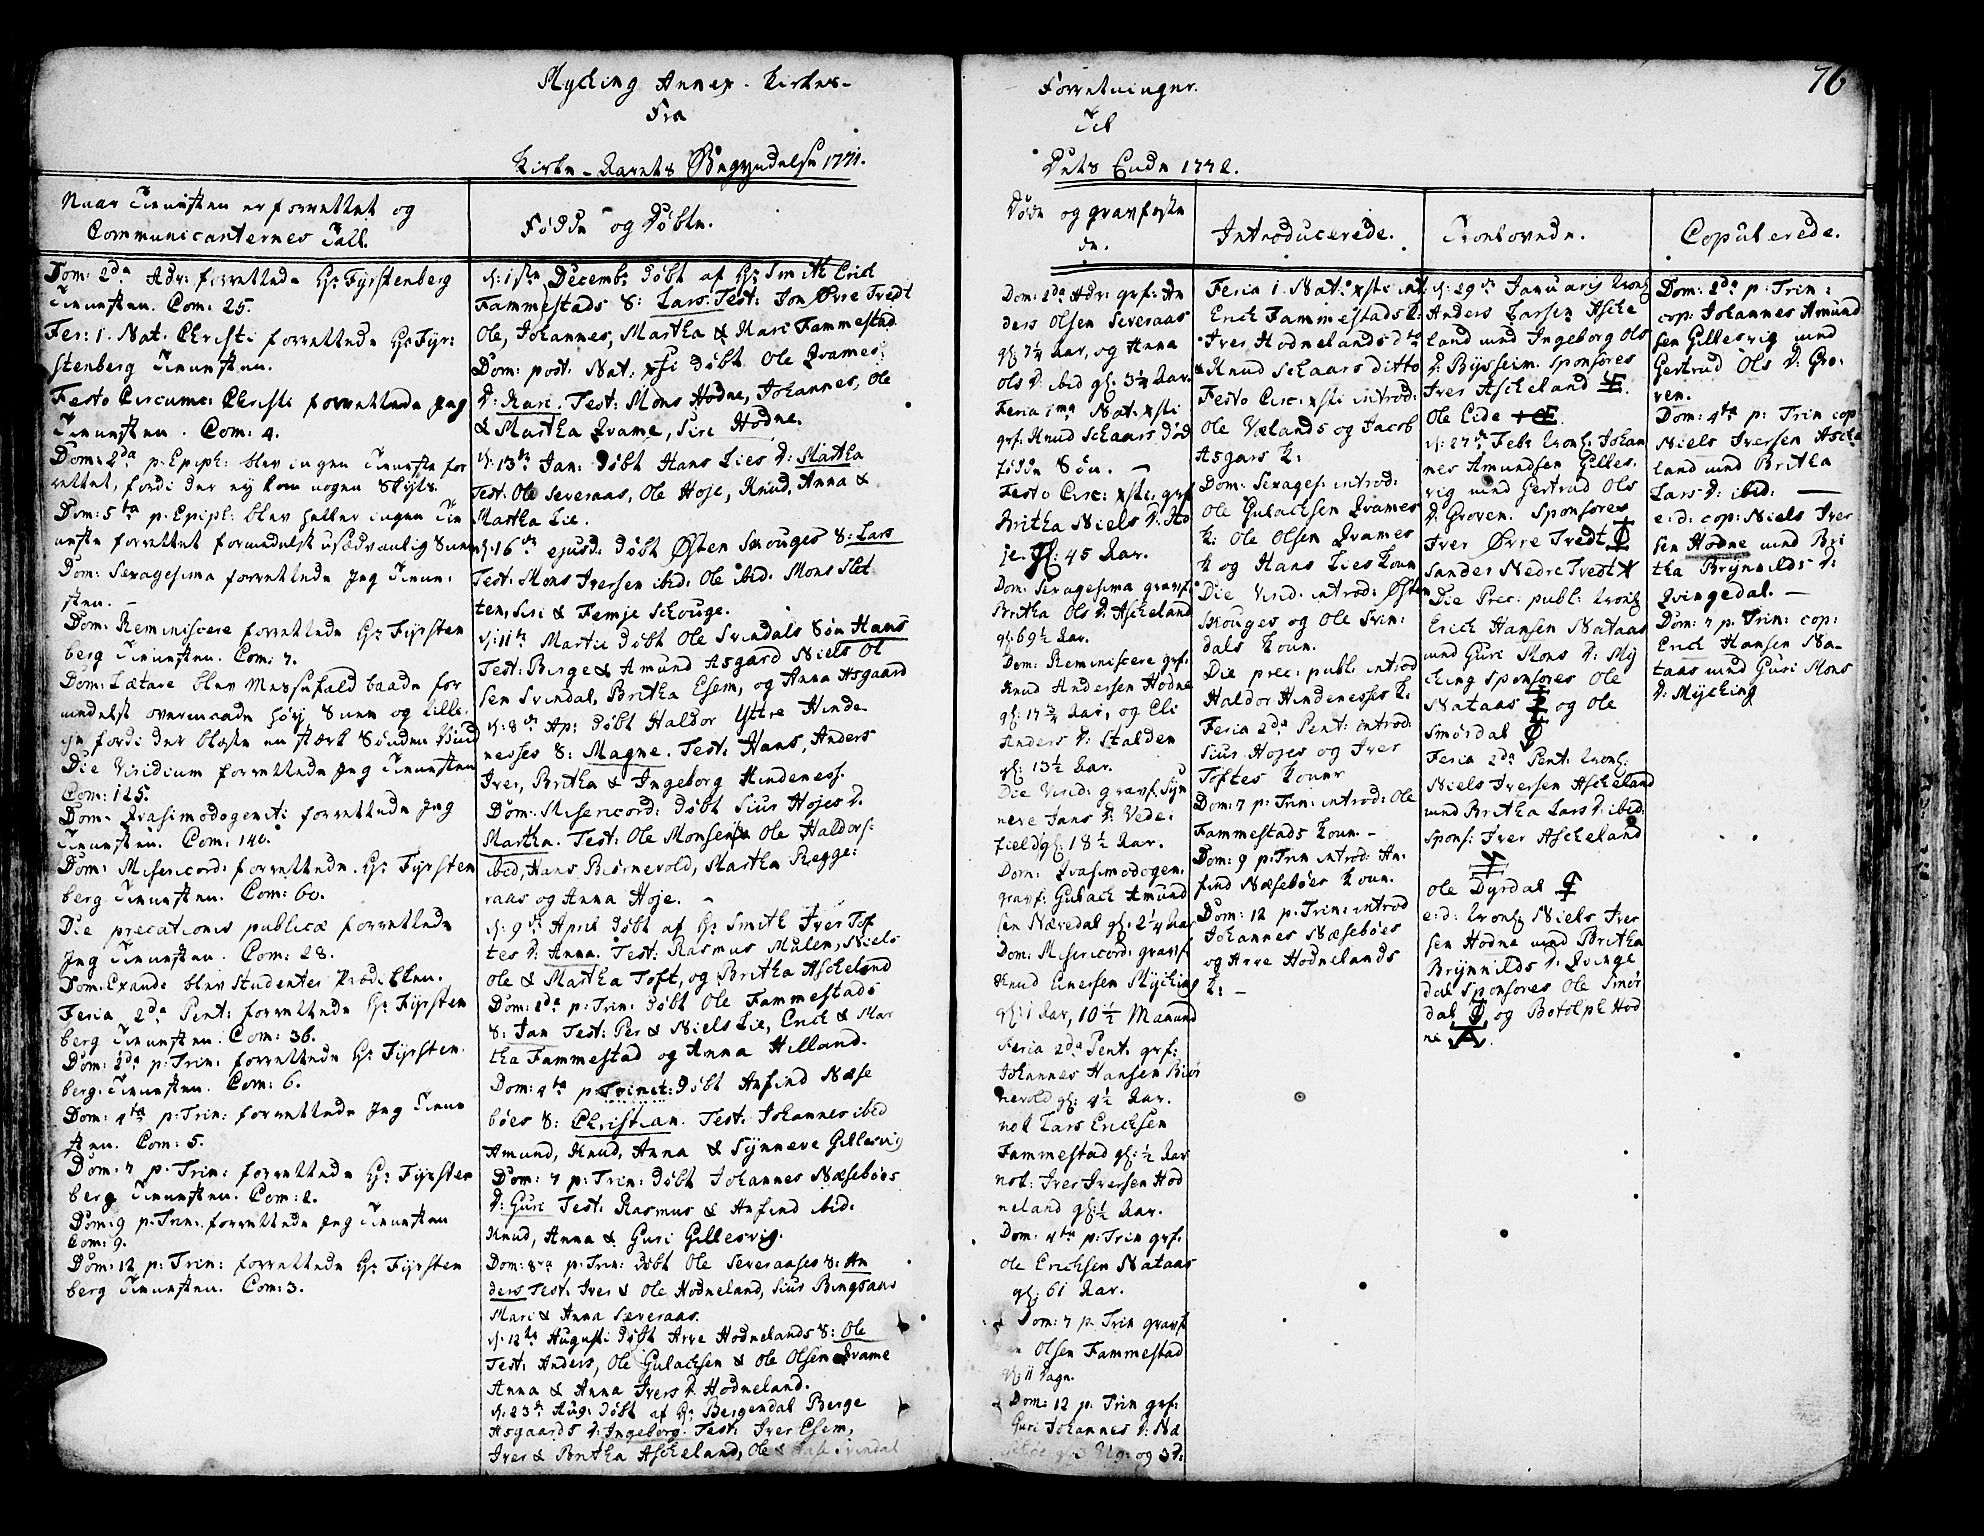 Myking Annex-Kirkes-
Fra
Kirke-Aarets Begyndelse 1771.
Naar Tienesten er forrettet og
Communicanternes Tall.
Dom: 2da Adv: forrettede Hr Fyrstenberg
Tienesten. Com: 25.
Fer: 1. Nat. Christi forrettede Hr Fyr:
stenberg Tienesten.
Festo Circumc: Christi forrettede Jeg
Tienesten. Com: 4.
Dom: 2da p: Epiph: blev ingen Tieneste for
rettet, fordi der ey kom nogen Skyts.
Dom: 5ta p: Epiph: blev heller ingen Tie
neste forrettet formedelst usædvanlig Snee
Dom: Sexagesima forrettede Jeg Tiene:
sten. –
Dom: Reminiscere forrettede Hr Fyrsten
berg Tienesten. Com: 7.
Dom: Lætare blev Messefald baade for
medelst overmaade høy Snee og tille
ge fordi der blæste en stærk Sønden Vind
Die Viridium forrettede Jeg Tienesten
Com: 125.
Dom: Qvasimodogeniti forrettede Jeg
Tienesten. Com: 140.
Dom: Misericord: forrettede Hr Fyrsten
berg Tienesten. Com: 60.
Die precationis publicæ forrettede
Jeg Tienesten. Com: 28.
Dom: Exaude blev Studenter Prædikken.
Feria 2da Pent: forrettede Hr Fyrsten
berg Tienesten. Com: 36.
Dom: 2da p: Trin: forrettede Hr Fyrsten
berg. Tienesten. Com: 6.
Dom: 4ta p: Trin: forrettede Jeg Tiene
sten. Com: 5.
Dom: 7 p: Trin: forrettede Hr Fyrsten
berg Tienesten. Com: 2.
Dom: 9 p: Trin: forrettede Jeg Tienesten
Com: 9.
Dom: 12 p: Trin: forrettede Hr Fyrsten
berg Tienesten. Com: 3.
Fødde og Døbte.
d: 1ste Decemb: døbt af Hr Smith Erich
Fammestads S: Lars. Test: Jon Øvre Tvedt
Ole, Johannes, Martha & Kari Fammestad
Dom: post. Nat: xsti døbt Ole Qvames
D: Kari. Test: Mons Hodne, Johannes, Ole
& Martha Qvame, Siri Hodne.
d: 13de Jan: døbt Hans Lies D: Martha
Test: Ole Severaas, Ole Hoje, Knud, Anna &
Martha Lie.
d: 16de ejusd: døbt Østen Skouges S: Lars
Test: Mons Iversen ibid: Ole ibid. Mons Slet
ten, Siri & Femje Schouge.
d: 11te Martii døbt Ole Svindals Søn Hans
Test: Birge & Amund Asgard Niels Ol
sen Svindal, Britha Esem, og Anna Asgaard
d: 8de Ap: døbt Haldor Yttre Hinde
nesses S: Magne. Test: Hans, Anders
Iver, Britha & Ingeborg Hindeness.
Dom: Misericord: døbt Siur Hojes D.
Martha. Test: Ole Monsen & Ole Haldors:
ibid, Hans Biørnevold, Martha Regge:
raas og Anna Hoje. –
d: 9de April døbt af Hr Smith Iver Tof
tes D: Anna. Test: Rasmus Mulen, Niels
Ole & Martha Toft, og Britha Ascheland
Dom: 2da p: Trin: døbt Ole Fammestads
S: Jan Test: Per & Niels Lie, Erich & Mar
tha Fammestad og Anna Helland.
Dom: 4ta p: Trinit: døbt Anfind Næse
bøes S: Christian. Test: Johannes ibid
Amund, Knud, Anna & Synneve Gillesvig
Dom: 7 p: Trin: døbt Johannes Næsebøes
D: Guri Test: Rasmus & Anfind ibid:
Knud, Anna & Guri Gillesvig.
Dom: 8va p: Trin: døbt Ole Severaases S: An
ders Test: Iver & Ole Hodneland, Siur Bingsaas
Mari & Anna Severaas.
d: 12te Augusti døbt Arre Hodnelands S: Ole
Test: Anders, Ole Gulachsen & Ole Olsen Qvame
Anna & Anna Ivers D. Hodneland.
d: 23de Aug: døbt af Hr Bergendal Berge
Asgaards D: Ingeborg. Test: Iver Esem,
Iver & Britha Ascheland, Ole & Svindal
76
Forretninger.
Til
Dets Ende 1772.
Døde og gravfeste
de.
Dom: 2da Adv: grf: An
ders Olsen Severaas
gl: 7¼ Aar, og Anna
Ols D: ibid gl: 3¼ Aar.
Feria 1ma Nat: xsti
grf. Knud Schaars død
fødde Søn. –
Festo Circ: xsti: grf
Britha Niels D: Ho
je. gl: 45 Aar.
Dom: Sexagesima gravf.
Britha Ols D: Ascheland
gl: 69½ Aar.
Dom: Reminiscere grf.
Knud Andersen Hodne
gl: 17¾ Aar, og Eli
Anders D: Stalden
gl: 13½ Aar.
Die Virid: gravf. Syn
neve Jans D: Vede:
field gl: 18½ Aar.
Dom: Qvasimodogen:
gravf: Gulach Amund
sen Næredal gl: 2¼ Aar
Dom: Misericord: gravf
Knud Einersen Mycking
gl: 1 Aar, 10½ Maaned
Feria 2da Pent: grf:
Johannes Hansen Biør
nevold gl: 4½ Aar.
not Lars Erichsen
Fammestad gl: ½ Aar
not: Iver Iversen Hod
neland gl: ½ Aar.
Dom: 4ta p: Trin grf.
Ole Erichsen Nataas
gl: 61 Aar.
Dom: 7 p. Trin gravf
Olsen Fammestad
gl: 11 Dage.
Dom: 12 p: Trin grf:
Guri Johannes D: Næ
sebøe gl: 3 Ug: og 3 D:
Introducerede.
Feria 1. Nat: xsti int
Erich Fammestads K:
Iver Hodnelands dto
Knud Schaars ditto
Festo Circ: xsti introd:
Ole Vælands og Jacob
Asgars K:
Dom: Sexages: introd:
Ole Gulachsen Qvames
K: Ole Olsen Qvames
K og Hans Lies Kone
Die Virid: introd: Østen
Skouges og Ole Svin:
dals Kone.
Die prec: publ: introd
Haldor Hindenesses K:
Feria 2da Pent: introd:
Siur Hojes og Iver
Toftes Koner
Dom: 7 p: Trin: introd: Ole
Fammestads Kone. –
Dom: 9 p: Trin introd: An:
find Næsebøes Kone.
Dom: 12 p: Trin: introd
Johannes Næsebøes
og Arre Hodnelands
K: –
Trolovede.
d: 29de Januarij trol:
Anders Larsen Asche
land med Ingeborg Ols
D: Bysseim. Sponsores
Iver Ascheland
Ole Eide
d: 27de Febr trol: Johan
nes Amundsen Gilles.
vig med Gertrud Ols
D: Groven. Sponsores
Iver Øvre Tvedt
Sander Nedre Tvedt
Die Prec: publ: trol:
Erich Hansen Nataas
med Guri Mons D: My
cking Sponsores Ole
Nataas og Ole
Smørdal
Feria 2da Pent: trol:
Niels Iversen Ascheland
med Britha Lars D: ibid:
Spons: Iver Ascheland
Ole Dyrdal
e: d: trol: Niels Iver
sen Hodne med Britha
Brynnilds D: Qvinge
dal Sponsores Ole Smør
dal og Botolph Hod
ne
Copulerede.
Dom: 2da p: Trin:
cop: Johannes Amund
sen Gillesvig med
Gertrud Ols D: Gro:
ven.
Dom: 4ta p: Trin cop
Niels Iversen Asche
land med Britha
Lars D: ibid: –
e: d: cop: Niels Iver
sen Hodne med Bri
tha Brynnilds D:
Qvingedal. –
Dom: 7 p: Trin: cop:
Erich Hansen Na-
taas med Guri Mons
D: Mycking